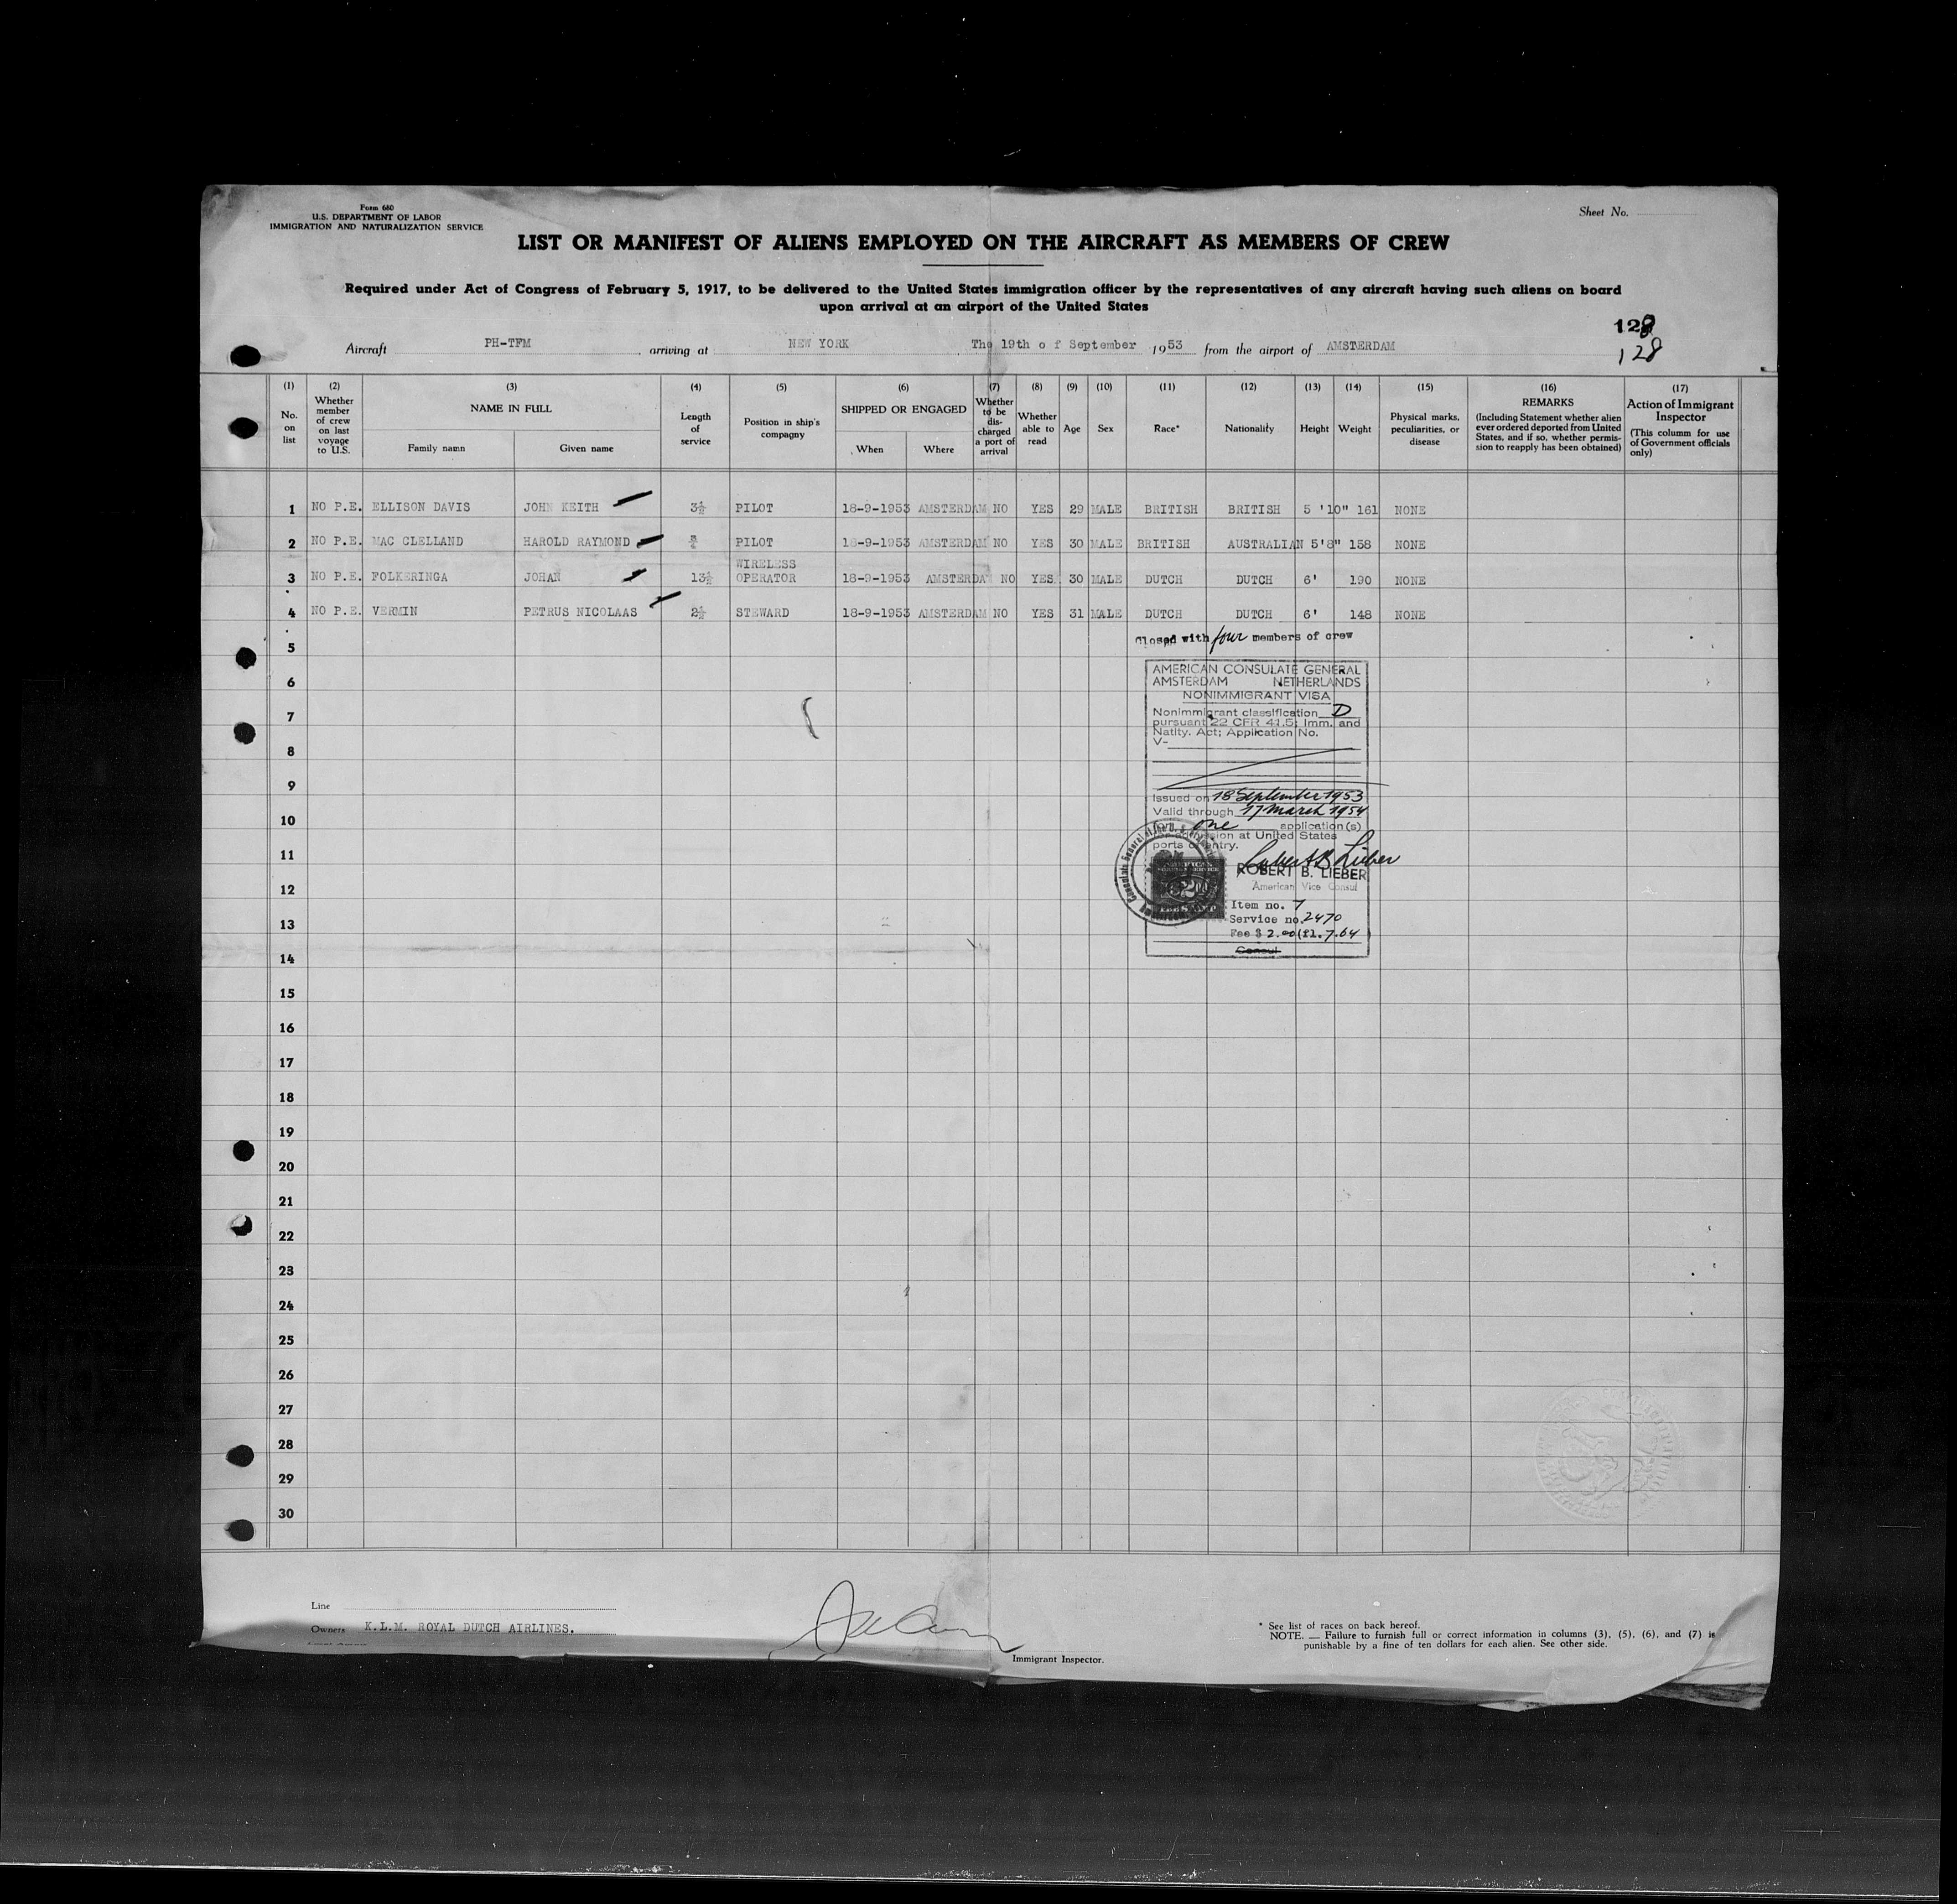 Form 680
U.S. DEPARTMENT OF LABOR
IMMIGRATION AND NATURALIZATION SERVICE
Sheet No.
LIST OR MANIFEST OF ALIENS EMPLOYED ON THE AIRCRAFT AS MEMBERS OF CREW
Required under Act of Congress of February 5, 1917, to be delivered to the United States immigration officer by the representatives of any aircraft having such aliens on board
upon arrival at an airport of the United States
128
128
Aircraft PH-TFM arriving at NEW YORK The 19th o f September 1953 from the airport of AMSTERDAM
(1) No. on list
(2) Whether member of crew on last voyage to U.S.
(3) NAME IN FULL Family name Given name
(4) Length of service
(5) Position in ship's compagny
(6) SHIPPED OR ENGAGED When Where
(7) Whether to be dis-charged a port of arrival
(8) Whether able to read
(9) Age
(10) Sex
(11) Race*
(12) Nationality
(13) Height
(14) Weight
(15) Physical marks, peculiarities, or disease
(16) REMARKS (Including Statement whether alien ever ordered deported from United States, and if so, whether permis-sion to reapply has been obtained)
(17) Action of Immigrant Inspector (This column for use of Government officials only)
1 NO P.E. ELLISON DAVIS JOHN KEITH 3½ PILOT 18-9-1953 AMSTERDAM NO YES 29 MALE BRITISH BRITISH 5 '10" 161 NONE
2 NO P.E. MAC CLELLAND HAROLD RAYMOND PILOT 18-9-1953 AMSTERDAM NO YES 30 MALE BRITISH AUSTRALIAN 5'8" 158 NONE
3 NO P.E. FOLKERINGA JOHAN 13½ WIRELESS OPERATOR 18-9-1953 AMSTERDAM NO YES 30 MALE DUTCH DUTCH 6' 190 NONE
4 NO P.E. VERMIN PETRUS NICOLAAS 2½ STEWARD 18-9-1953 AMSTERDAM NO YES 31 MALE DUTCH DUTCH 6' 148 NONE
Closed with four members of crew
5
6
7
8
9
10
11
12
13
14
15
16
17
18
19
20
21
22
23
24
25
26
27
28
29
30
AMERICAN CONSULATE GENERAL
AMSTERDAM NETHERLANDS
NONIMMIGRANT VISA
Nonimmigrant classification D
pursuant 22 CFR 41.5; Imm. and
Natlty. Act; Application No.
V-
Issued on 18 September 1953
Valid through 17 March 1954
one application(s)
for admission at United States
ports of entry.
Robert B Lieber
ROBERT B. LIEBER
American Vice Consul
Item no. 7
Service no. 2470
Fee $ 2.00 (fl. 7.64
Consul
Line
Owners K.L.M. ROYAL DUTCH AIRLINES.
Immigrant Inspector.
* See list of races on back hereof.
NOTE. — Failure to furnish full or correct information in columns (3), (5), (6), and (7) is
punishable by a fine of ten dollars for each alien. See other side.